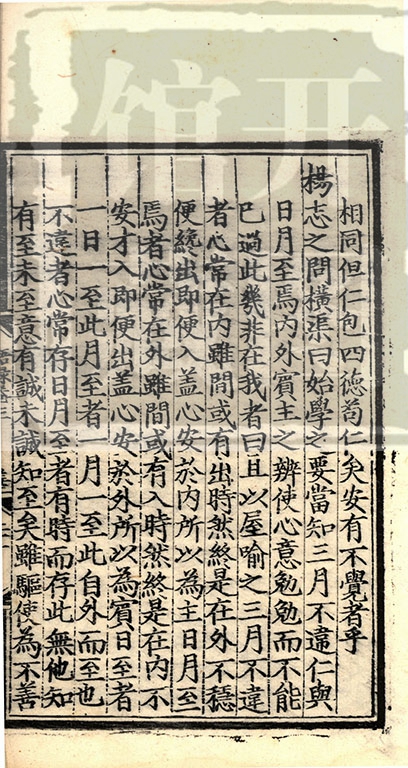 相同但仁包四德苟仁矣安有不覺者乎
楊志之問橫渠曰始學之要當知三月不違仁與
日月至焉內外賓主之辨使心意勉勉而不能
已過此幾非在我者曰且以屋喻之三月不違
者心常在內雖間或有出時然終是在外不穩
便纔出即便入盖心安於內所以為主日月至
焉者心常在外雖間或有入時然終是在內不
安才入即便出盖心安於外所以為賓日至者
一日一至此月至者一月一至此自外而至也
不違者心常存日月至者有時而存此無他知
有至未至意有誠未誠知至矣雖驅使為不善